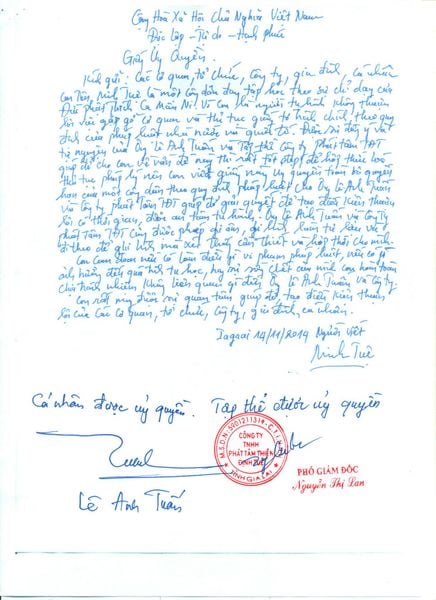 Cộng Hoà Xã Hội Chủ Nghĩa Việt Nam
Độc lập - Tự do - Hạnh phúc
Giấy Ủy Quyền.
Kính gửi: Các cơ quan, tổ chức, công ty, gia đình, cá nhân
Con Tên, Minh Tuệ là một công dân đang tập học theo sự chỉ dạy của
Đức phật Thích Ca Mâu Ni! Vì con là người tu hành không thuận
lợi việc gặp gỡ cơ quan và thủ tục giấy tờ hành chính, theo quy
định của pháp luật nhà nước và quốc tế.
tự nguyện của Ông Lê Anh Tuấn và Tập thể Công ty Phát tâm TĐT
giúp đỡ cho con về vấn đề này thì rất tốt đẹp để hợp thức hoá
thủ tục pháp lý nên con viết giấy này uỷ quyền toàn bộ quyền
hạn của một công dân theo quy định pháp luật cho Ông Lê Anh Tuấn
và Công ty Phát tâm TĐT giúp đỡ giải quyết để tạo điều kiện thuận
lợi có thời gian, được an tâm tu hành. Ông Lê Anh Tuấn và Công ty
phát tâm TĐT cũng được phép đi
đi theo để ghi hình mà xét thấy cần thiết và hợp thời cho mình.
Con Cam đoan nếu có làm điều gì vi phạm pháp luật, việc có gì
ảnh hưởng đến quá trình tu học, hay sự sống chết của mình con hoàn toàn
chịu trách nhiệm không liên quan gì đến Ông Lê Anh Tuấn và Công ty.
Con rất mong được sự quan tâm giúp đỡ, tạo điều kiện thuận
lợi của Các Cơ quan, tổ chức, Công ty, gia đình, cá nhân.
Iagrai 14/11/2014 Người viết
Minh Tuệ
Cá nhân được uỷ quyền. Tập thể được uỷ quyền
M.S.D.N: 5901211314
CÔNG TY
TNHH
PHÁT TÂM THIÊN
TỈNH GIA LAI
PHÓ GIÁM ĐỐC
Nguyễn Thị Lan
Lê Anh Tuấn